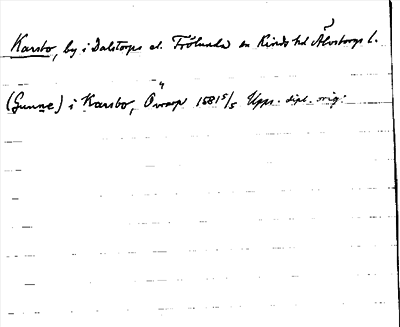 Karsbo, by i Dalstorps el. Frölunda sn Kinds hd Älvsborgs l.
(Gunne) i Karsbo, 1581 5/5 Upps. dipl. orig.